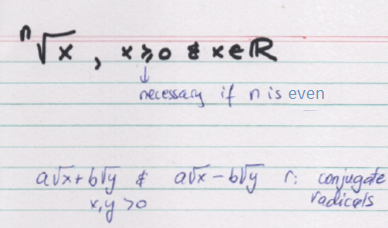 ⁿ√x , x ≥ 0 & x ∈ ℝ
↓
necessary if n is even
a√x + b√y & a√x − b√y r: conjugate
x, y > 0 radicals